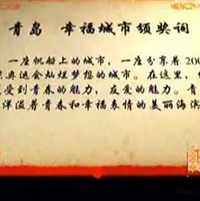 青岛 幸福城市颁奖词
一座帆船上的城市,一座分享着200
奥运会灿烂梦想的城市。在这里,
受到青春的魅力,友爱的魅力。青
洋溢着青春和幸福表情的美丽海滨